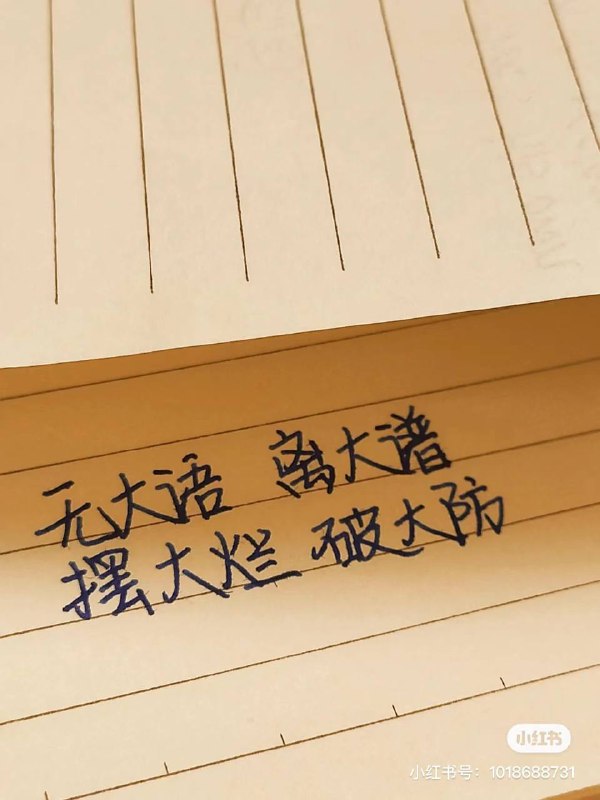 无大语 离大谱
摆大烂 破大防
小红书
小红书号：1018688731